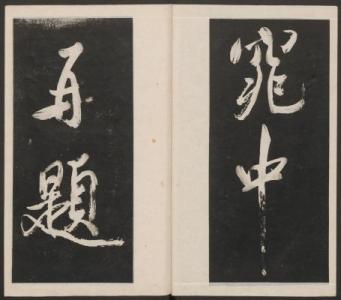 窕中
再題